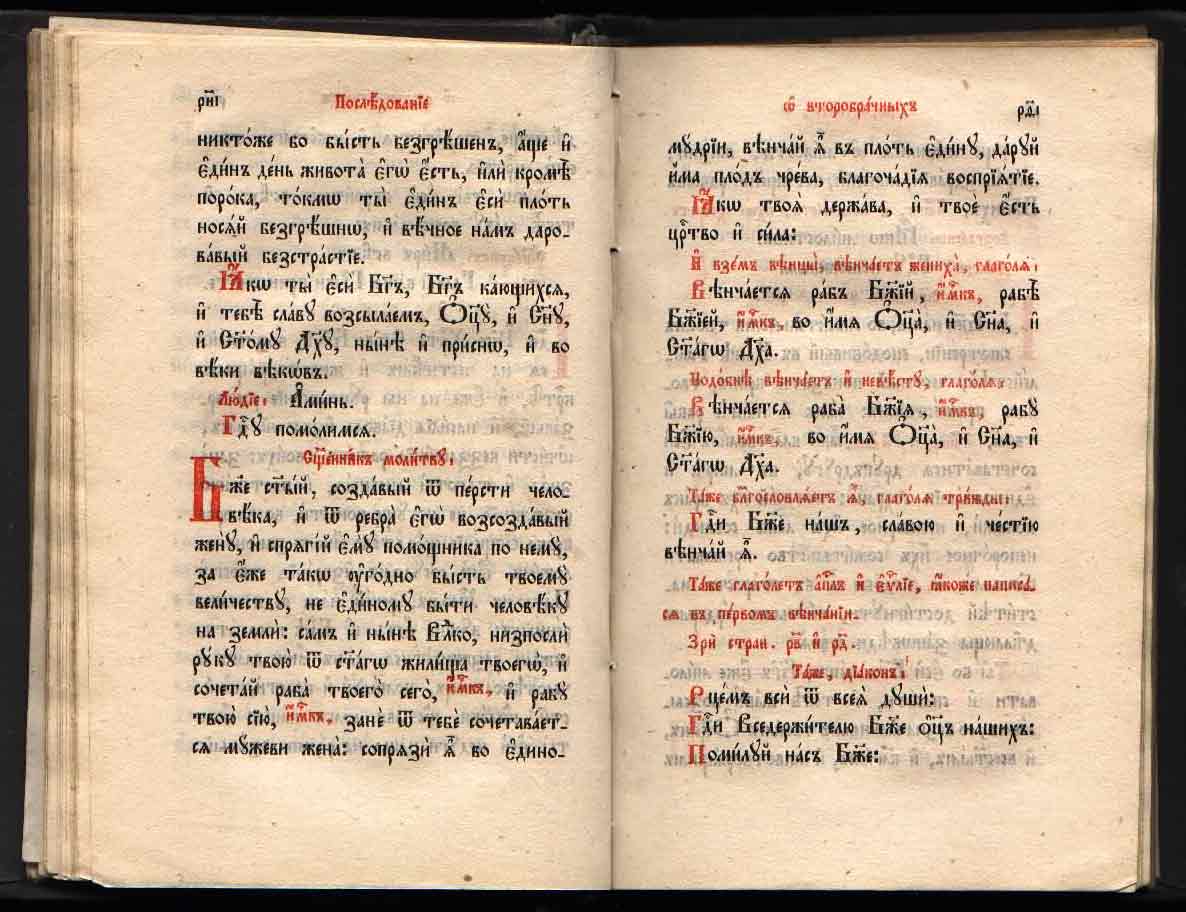 рн҃і
Послѣ́дованїе
никто́же бо бы́сть безгрѣ́шенъ, а҆́ще и҆
є҆ди́нъ де́нь живота̀ є҆гѡ̀ є҆́сть, и҆лѝ кромѣ̀
поро́ка, то́кмѡ ты̀ є҆ди́нъ є҆сѝ пло́ть
нося́й безгрѣ́шнѡ, и҆ вѣ́чное на́мъ даро-
ва́вый безстра́стїе.
Ꙗ҆́кѡ ты̀ є҆сѝ бг҃ъ, бг҃ъ ка́ющихся,
и҆ тебѣ̀ сла́ву возсыла́емъ, Ѻ҆ц҃у̀, и҆ Сн҃у,
и҆ Ст҃о́му Дх҃у, ны́нѣ и҆ при́снѡ, и҆ во
вѣ́ки вѣкѡ́въ.
Лю́дїе: А҆ми́нь.
Гдⷭ҇у помо́лимся.
Сщ҃е́нникъ моли́тву:
Бж҃е ст҃ы́й, созда́вый ѿ пе́рсти чело-
вѣ́ка, и҆ ѿ ребра̀ є҆гѡ̀ возсозда́вый
женꙋ̀, и҆ спряги́й є҆мꙋ̀ помо́щника по немꙋ̀,
за є҆́же та́кѡ ᲂу҆го́дно бы́сть твоемꙋ̀
вели́чествꙋ, не є҆ди́номꙋ бы́ти человѣ́кꙋ
на землѝ: са́мъ и҆ ны́нѣ влⷣко, низпослѝ
рꙋ́кꙋ твою̀ ѿ ст҃а́гѡ жили́ща твоегѡ̀, и҆
сочета́й раба̀ твоего̀ сего̀, и҆́мⷬ҇къ, и҆ рабꙋ̀
твою̀ сїю̀, и҆́мⷬ҇къ, занѐ ѿ тебѐ сочетава́ет-
ся мꙋ́жеви жена̀: сопрязѝ ѧ҆̀ во є҆дино-
Ѡ҆ второбра́чныхъ
рн҃ѳ
мꙋ́дрїи, вѣнча́й ѧ҆̀ въ пло́ть є҆ди́нꙋ, да́рꙋй
и҆́ма пло́дъ чре́ва, благоча́дїя воспрїя́тїе.
Ꙗ҆́кѡ твоя̀ держа́ва, и҆ твоѐ є҆́сть
црⷭ҇тво и҆ си́ла:
И҆ взе́мъ вѣнцы̀, вѣнча́етъ жениха̀, глаго́ля:
Вѣнча́ется ра́бъ Бж҃їй, и҆́мⷬ҇къ, рабѣ̀
Бж҃їей, и҆́мⷬ҇къ, во и҆́мя Ѻ҆ц҃а̀, и҆ Сн҃а, и҆
Ст҃а́гѡ Дх҃а.
Подо́бнѣ вѣнча́етъ и҆ невѣ́стꙋ, глаго́ля:
Вѣнча́ется раба̀ Бж҃їя, и҆́мⷬ҇къ, рабꙋ̀
Бж҃їю, и҆́мⷬ҇къ, во и҆́мя Ѻ҆ц҃а̀, и҆ Сн҃а, и҆
Ст҃а́гѡ Дх҃а.
Та́же бл҃гословля́етъ ѧ҆̀, глаго́ля три́жды:
Гдⷭ҇и Бж҃е на́шъ, сла́вою и҆ че́стїю
вѣнча́й ѧ҆̀.
Та́же глаго́летъ а҆пⷭ҇лъ и҆ є҆ѵⷢ҇лїе, ꙗ҆́коже написа́-
ся въ пе́рвомъ вѣнча́нїи.
Зрѝ стран. и҆
Та́же, дїа́конъ:
Рце́мъ всѝ ѿ всея̀ дꙋшѝ:
Гдⷭ҇и Вседержи́телю Бж҃е ѻ҆ц҃ъ на́шихъ:
Поми́лꙋй на́съ Бж҃е: